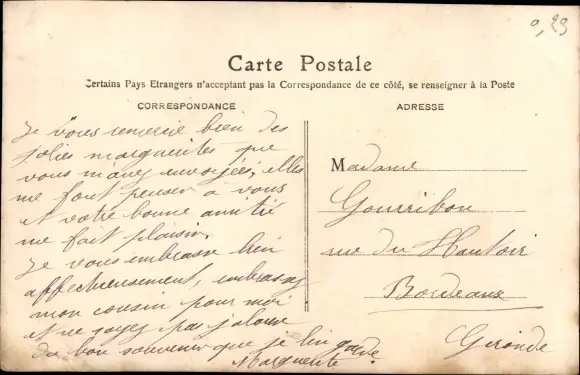 0,29
Carte Postale
Certains Pays Etrangers n'acceptant pas la Correspondance de ce côté, se renseigner à la Poste
CORRESPONDANCE
ADRESSE
Je vous remercie bien des
jolies marguerites que
vous m'avez envoyées, elles
me font penser à vous
et votre bonne amitié
me fait plaisir.
Je vous embrasse bien
affectueusement, embrassez
mon cousin pour moi
et ne soyez pas jalouse
du bon souvenir que je lui garde.
Marguerite
Madame
Gourribon
rue du Hautoir
Bordeaux
Gironde